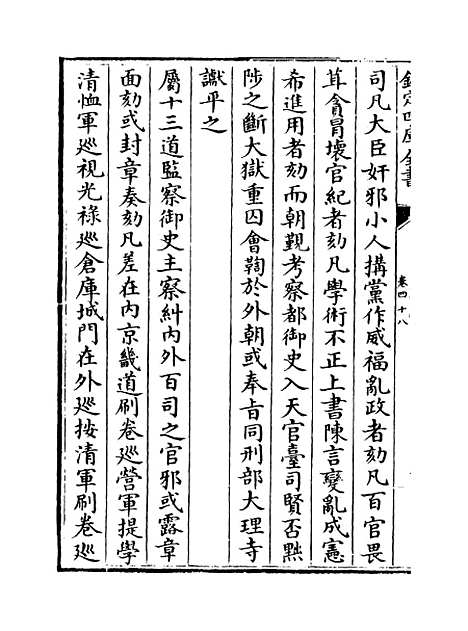 欽定四庫全書
卷四十八
司凡大臣奸邪小人搆黨作威福亂政者劾凡百官畏
茸貪冒壞官紀者劾凡學術不正上書陳言變亂成憲
希進用者劾而朝覲考察都御史入天官臺司賢否黜
陟之斷大獄重囚會鞫於外朝或奉㫖同刑部大理寺
讞平之
屬十三道監察御史主察糾內外百司之官邪或露章
面劾或封章奏劾凡差在內京畿道刷卷廵營軍提學
清恤軍廵視光祿廵倉庫城門在外廵按清軍刷卷廵